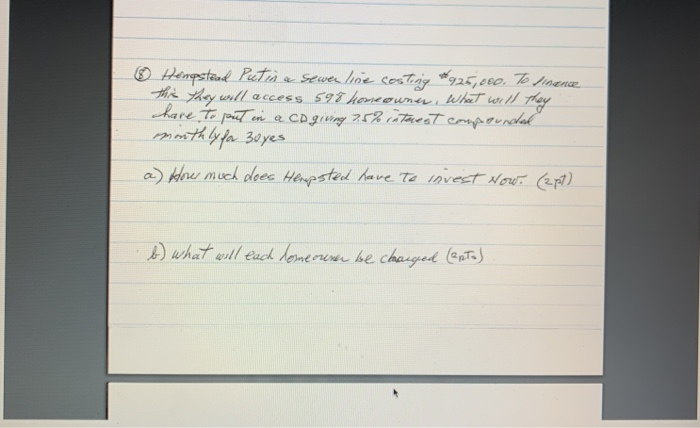 ⑧ Hempstead Put in a sewer line costing $925,000. To finance
this they will access 598 homeowner. What will they
have to put in a CD giving 7.5% interest compounded
monthly for 30 yes
a) How much does Hempsted have To invest Now. (2pt)
b) what will each homeowner be charged (2pts)